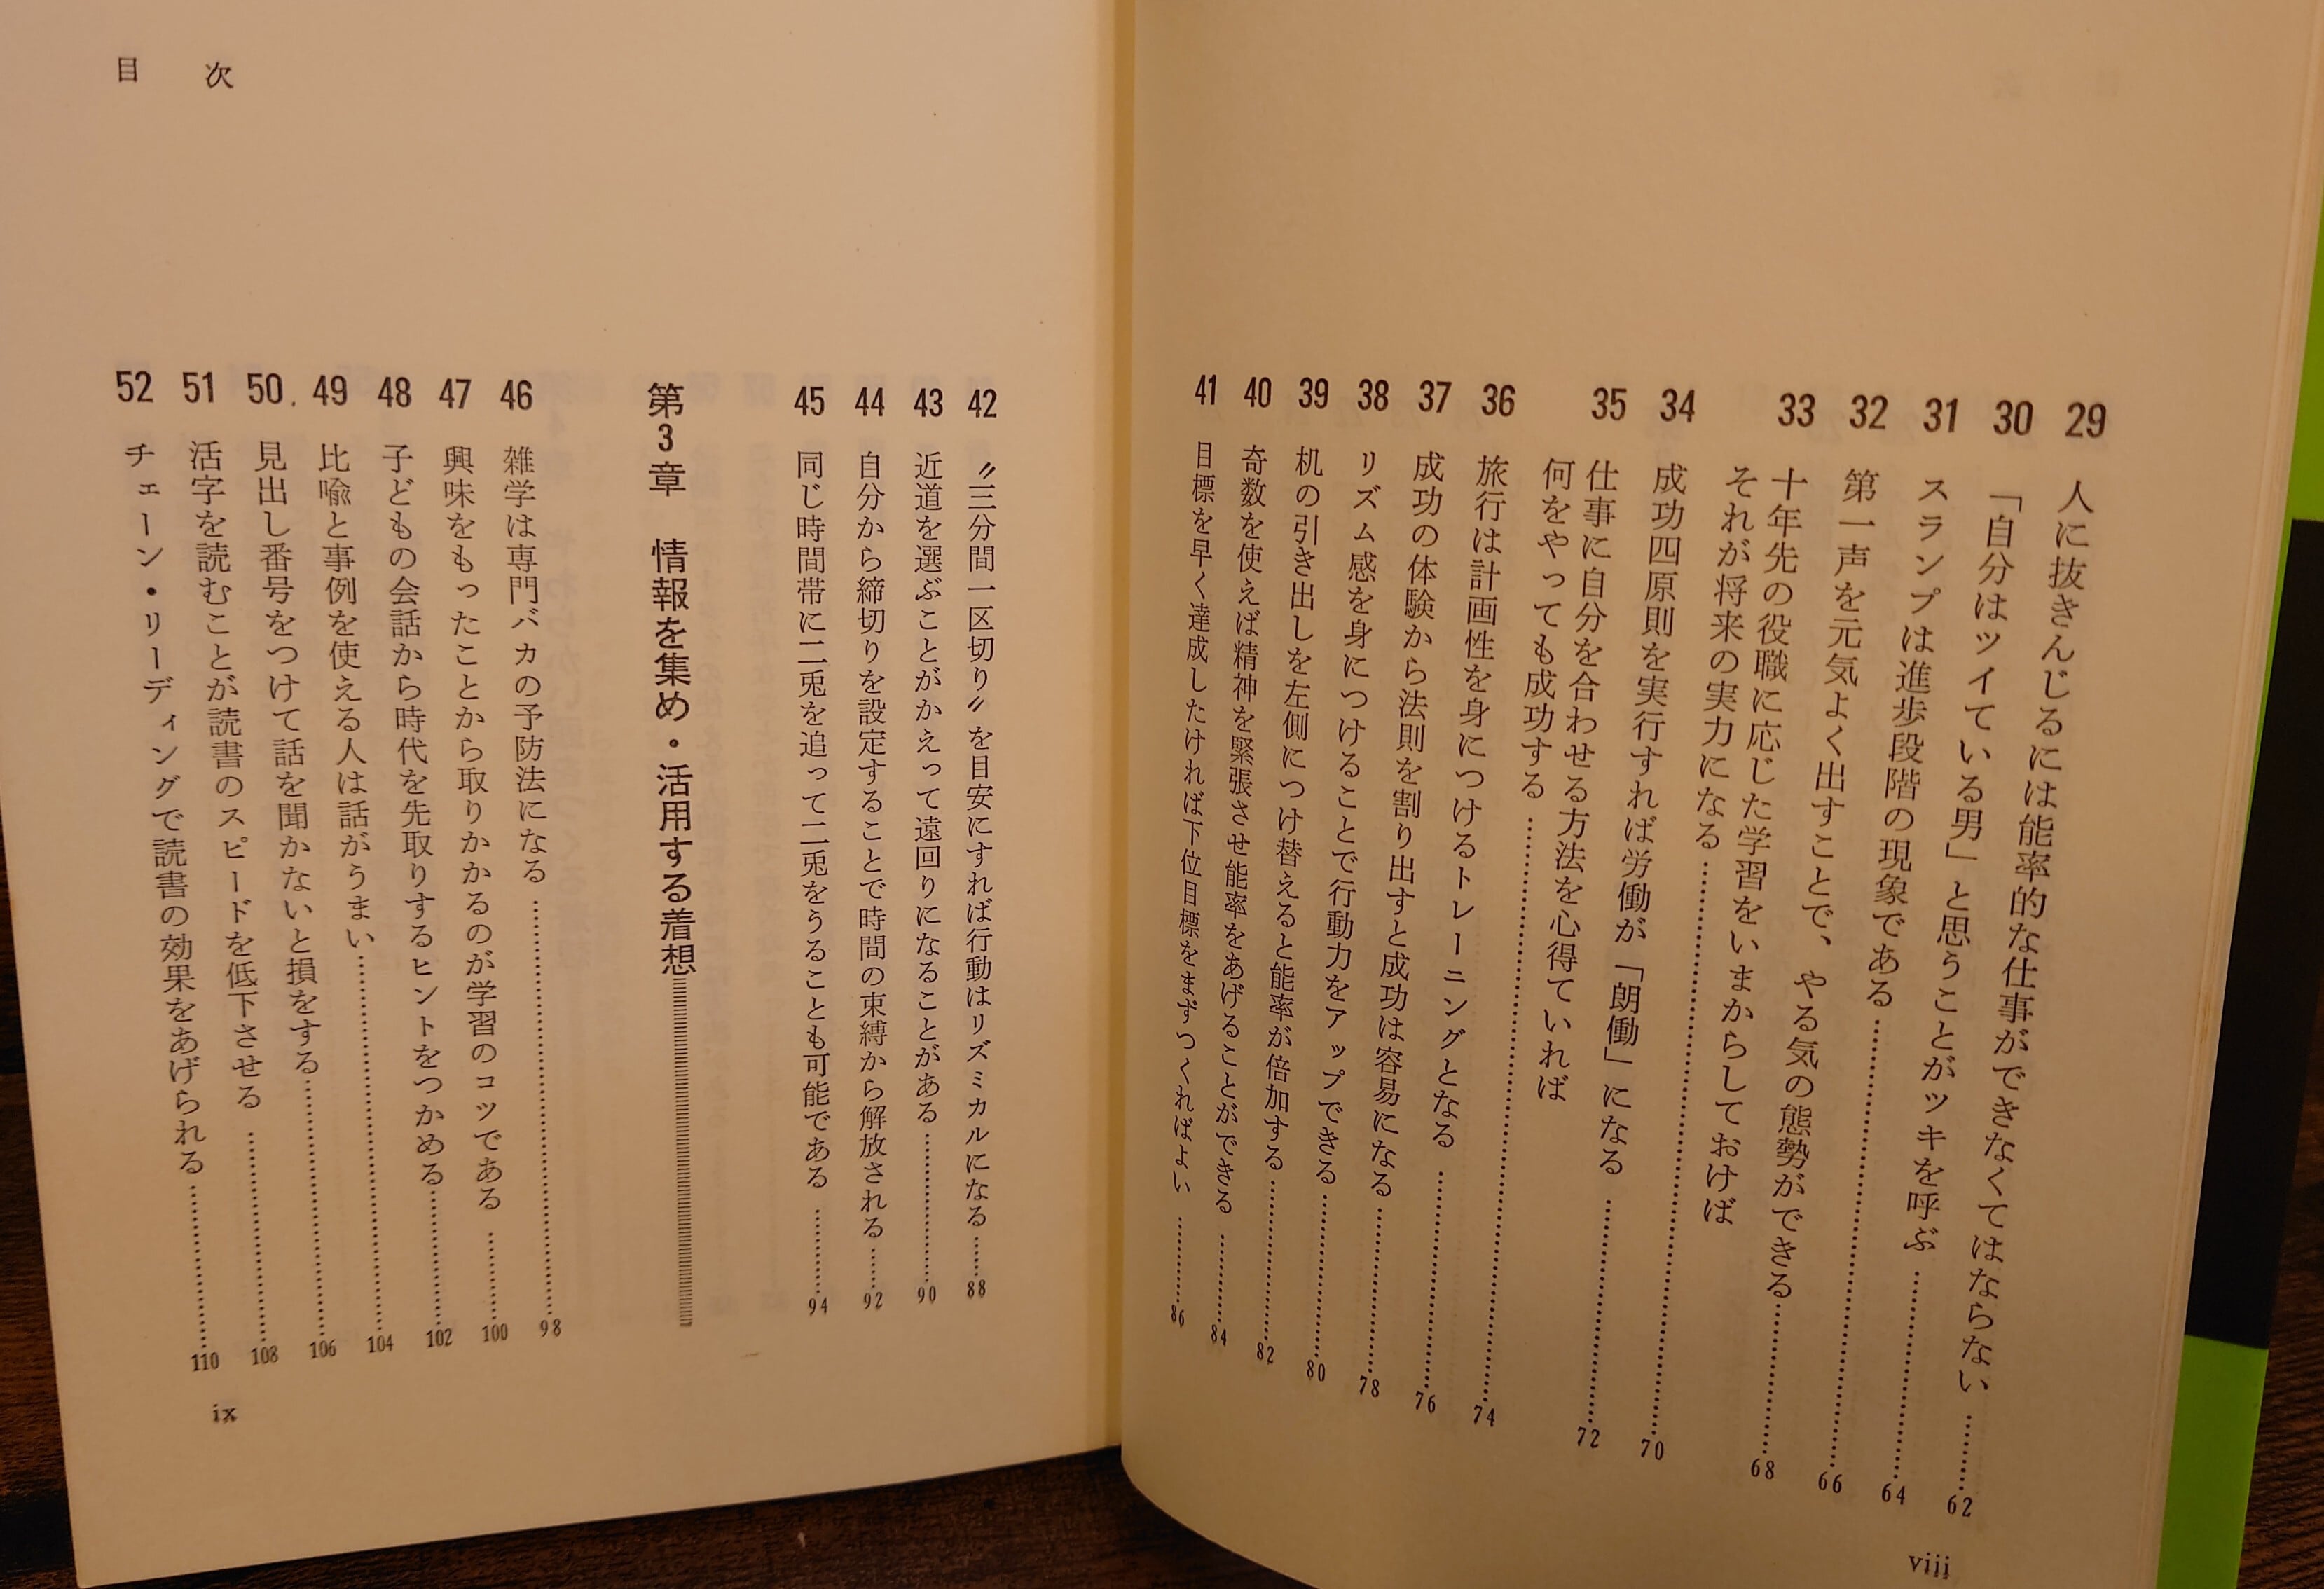 29 人に抜きんじるには能率的な仕事ができなくてはならない………62
30 「自分はツイている男」と思うことがツキを呼ぶ………64
31 スランプは進歩段階の現象である………66
32 第一声を元気よく出すことで、やる気の態勢ができる………68
33 十年先の役職に応じた学習をいまからしておけば
それが将来の実力になる………70
34 成功四原則を実行すれば労働が「朗働」になる………72
35 仕事に自分を合わせる方法を心得ていれば
何をやっても成功する………74
36 旅行は計画性を身につけるトレーニングとなる………76
37 成功の体験から法則を割り出すと成功は容易になる………78
38 リズム感を身につけることで行動力をアップできる………80
39 机の引き出しを左側につけ替えると能率が倍加する………82
40 奇数を使えば精神を緊張させ能率をあげることができる………84
41 目標を早く達成したければ下位目標をまずつくればよい………86
viii
目次
42 〝三分間一区切り〟を目安にすれば行動はリズミカルになる……88
43 近道を選ぶことがかえって遠回りになることがある………90
44 自分から締切りを設定することで時間の束縛から解放される……92
45 同じ時間帯に二兎を追って二兎をうることも可能である………94
第3章 情報を集め・活用する着想
46 雑学は専門バカの予防法になる………98
47 興味をもったことから取りかかるのが学習のコツである………100
48 子どもの会話から時代を先取りするヒントをつかめる………102
49 比喩と事例を使える人は話がうまい………104
50 見出し番号をつけて話を聞かないと損をする………106
51 活字を読むことが読書のスピードを低下させる………108
52 チェーン・リーディングで読書の効果をあげられる………110
ix